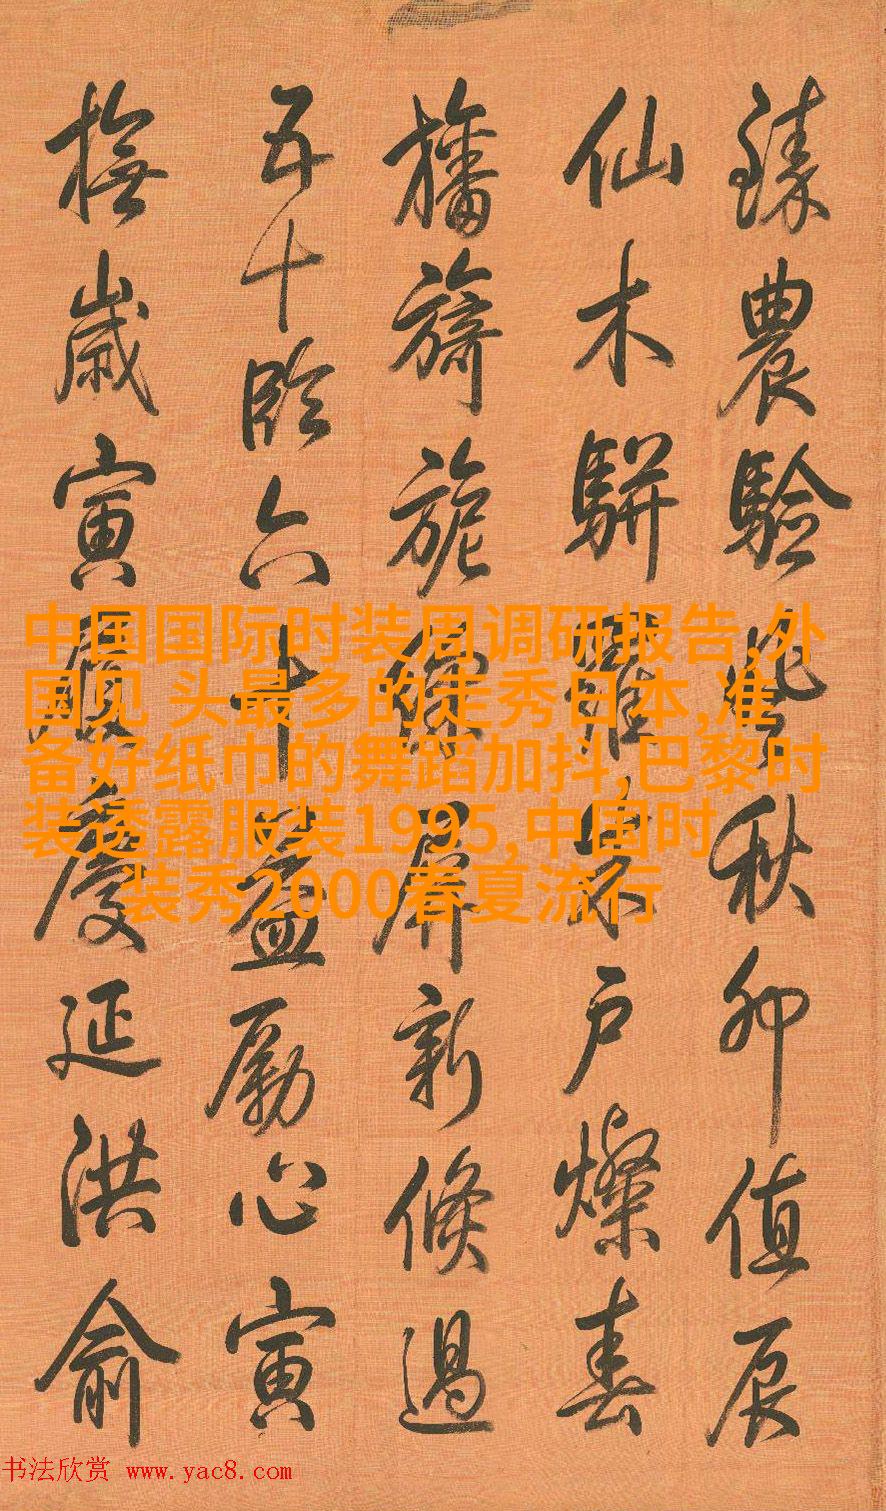 臻農驗秋卯值辰
仙木駢戶燦春
旛旖旎綵屏新倏過
五十臨六十益勵心寅
撫歲寅慶延洪俞
中国国际时装周调研报告,外
国见 头最多的走秀日本,准
备好纸巾的舞蹈加抖,巴黎时
装透露服装1995,中国时
装秀2000春夏流行
书法欣赏 www.yac8.com